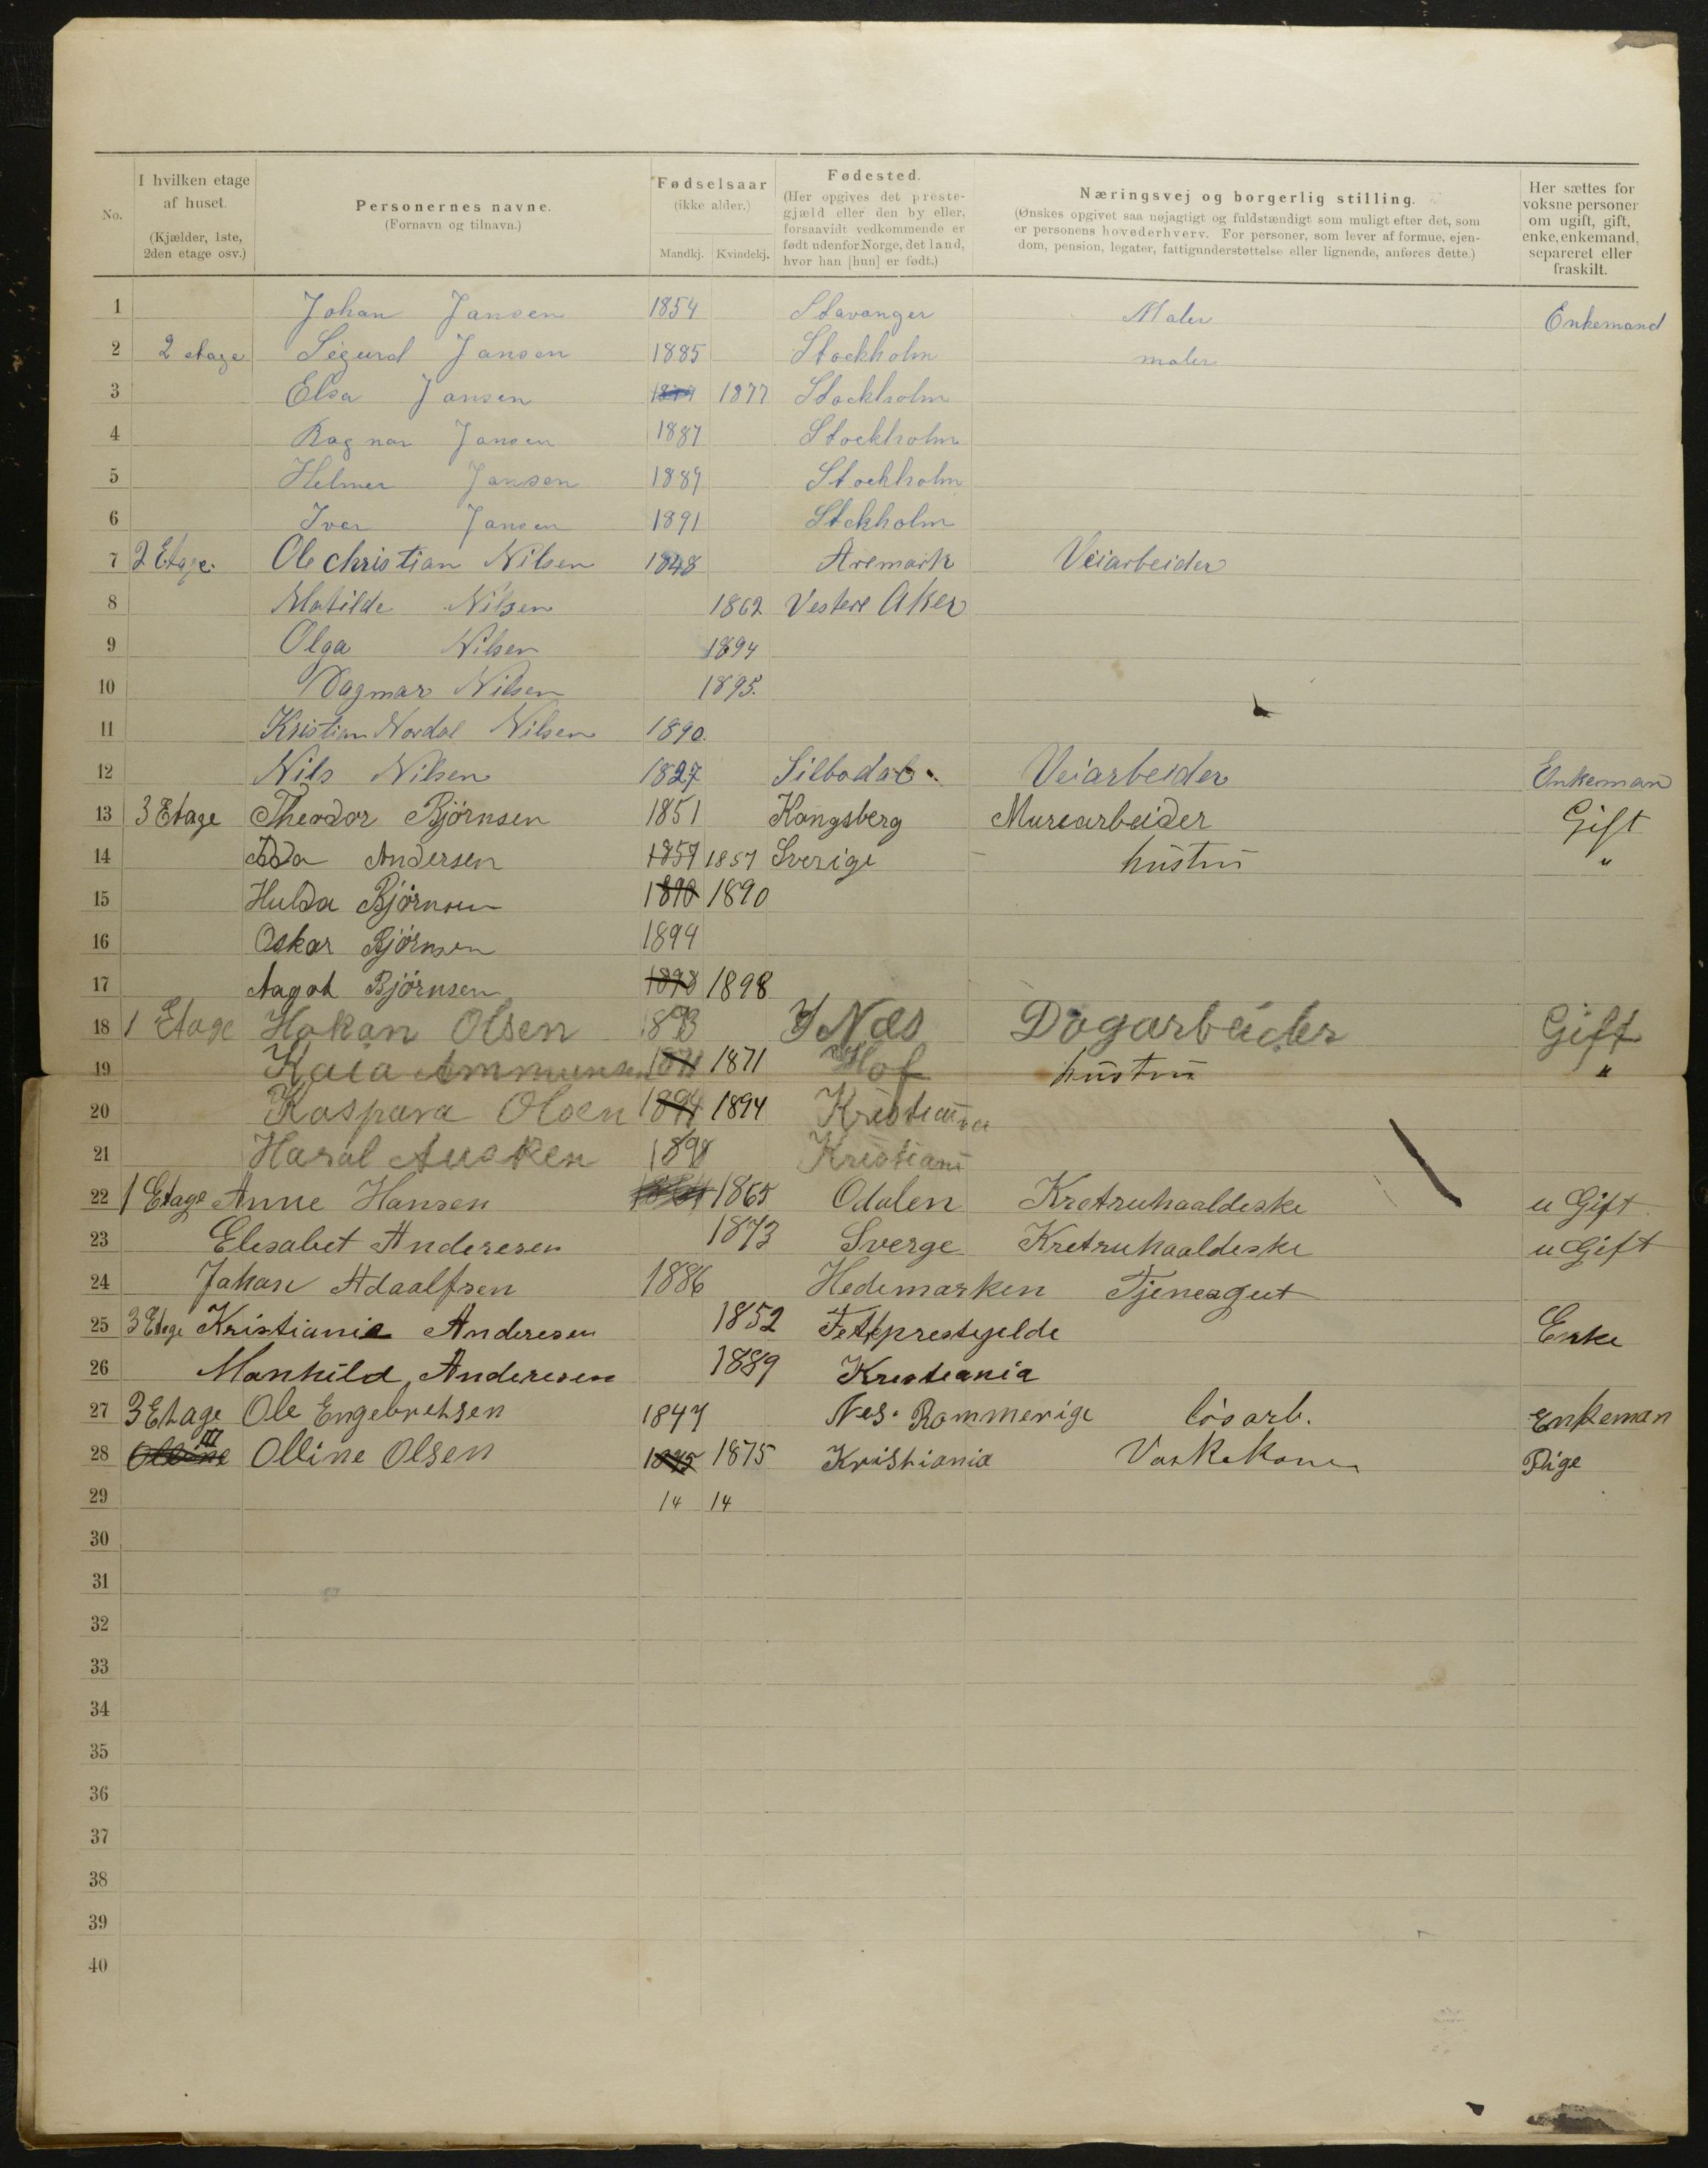 No.
I hvilken etage af huset.
(Kjælder, 1ste, 2den etage osv.)
Personernes navne.
(Fornavn og tilnavn.)
Fødselsaar
(ikke alder.)
Mandkj. Kvindekj.
Fødested.
(Her opgives det prestegjæld eller den by eller, forsaavidt vedkommende er født udenfor Norge, det land, hvor han [hun] er født.)
Næringsvej og borgerlig stilling.
(Ønskes opgivet saa nøjagtigt og fuldstændigt som muligt efter det, som er personens hovederhverv. For personer, som lever af formue, ejendom, pension, legater, fattigunderstøttelse eller lignende, anføres dette.)
Her sættes for voksne personer om ugift, gift, enke, enkemand, separeret eller fraskilt.
1 Johan Jansen 1854 Stavanger Maler Enkemand
2 2 etage Sigurd Jansen 1885 Stockholm maler
3 Elsa Jansen 1877 Stockholm
4 Ragnar Jansen 1887 Stockholm
5 Helmer Jansen 1889 Stockholm
6 Ivar Jansen 1891 Stckholm
7 2 Etage. Ole christian Nilsen 1848 Aremark Veiarbeider
8 Matilde Nilsen 1862 Vestere Aker
9 Olga Nilsen 1894
10 Dagmar Nilsen 1895.
11 Kristian Nordal Nilsen 1890.
12 Nils Nilsen 1827 Silbodal Veiarbeider Enkeman
13 3 Etage Theodor Bjørnsen 1851 Kongsberg Murearbeider Gift
14 Ida Andersen 1857 1857 Sverige hustru "
15 Hulda Bjørnsen 1890 1890
16 Oskar Bjørnsen 1894
17 Aagot Bjørnsen 1898 1898
18 1 Etage Hakan Olsen Næs Dagarbeider Gift
19 Kaia 1871 1871 Hof hustru "
20 Kaspara Olsen 1894 1894 Kristiania
21 Haral 1898 Kristiani
22 1 Etage Anne Hansen 1865 Odalen Kretruhaaldeske u Gift
23 Elesabet Anderesen 1873 Sverge Kretruhaaldeske u Gift
24 Johan Adaalfsen 1886 Hedemarken Tjenesgut
25 3 Etage Kristianie Anderesen 1852 Fetprestejelde Enke
26 Manhild Anderesen 1889 Kresteania
27 3 Etage Ole Engebretsen 1847 Nes. Rommerige løsarb. Enkeman
28 Olline III Olline Olsen 1875 1875 Kristiania Vaskekone Pige
29 14 14
30
31
32
33
34
35
36
37
38
39
40